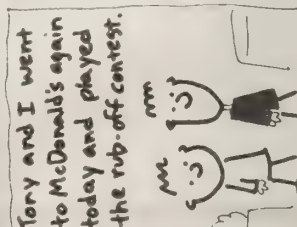 Tony and I went
to McDonald's again
today and played
the rub-off contest.